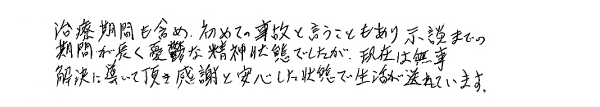 治療期間も含め、初めての事故と言うこともあり示談までの
期間が長く憂鬱な精神状態でしたが、現在は無事
解決に導いて頂き感謝と安心した状態で生活が送れています。